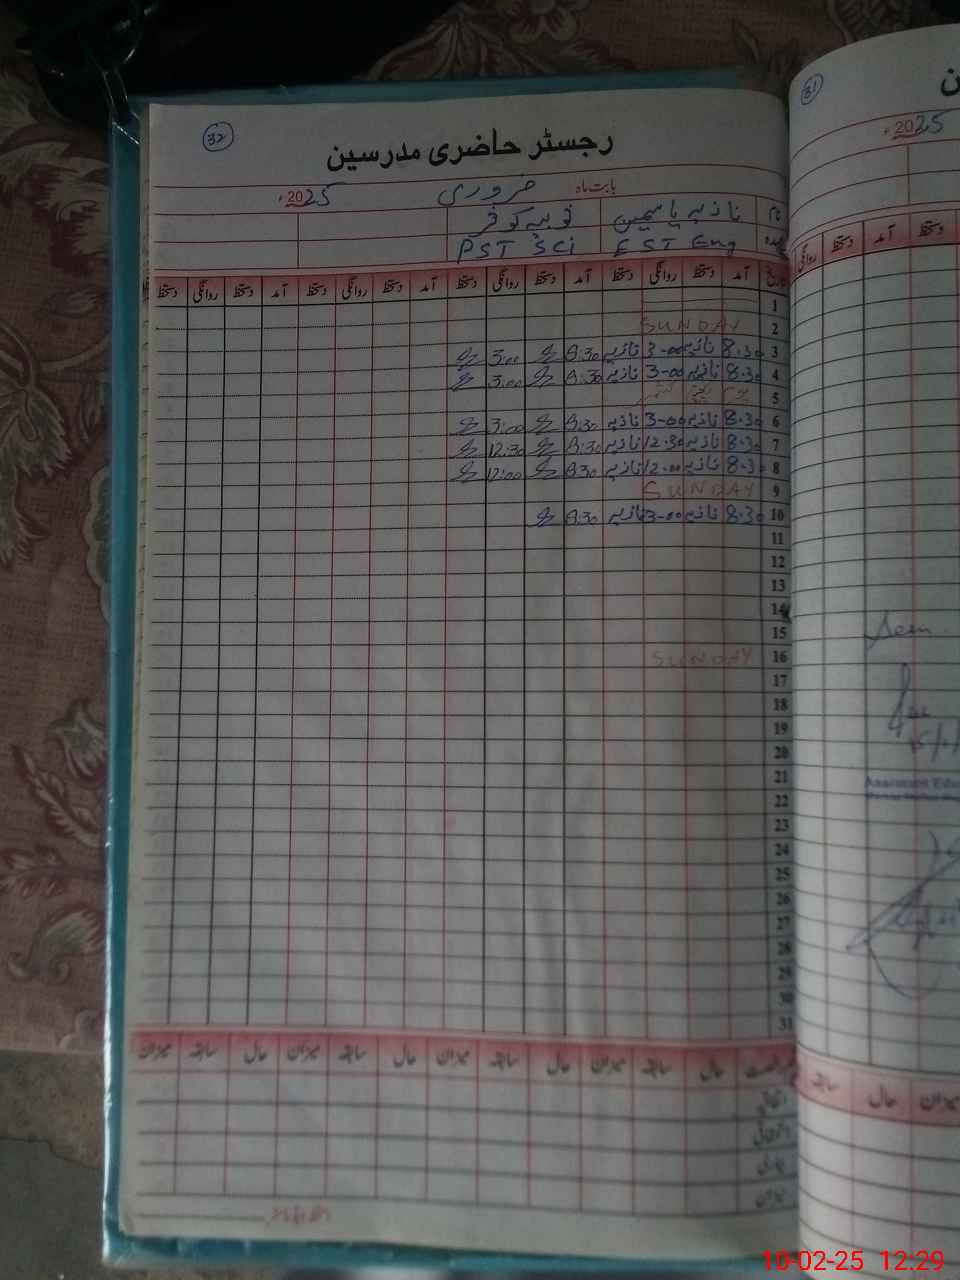 32
رجسٹر حاضری مدرسین
بابت ماہ فروری 2025ء
نام نازیہ یاسمین ثوبیہ کوثر
عہدہ EST Eng PST Sci
تاریخ آمد دستخط روانگی دستخط آمد دستخط روانگی دستخط آمد دستخط روانگی دستخط آمد دستخط روانگی دستخط
1
2 SUNDAY
3 8.30 نازیہ 3-00 نازیہ 8:30 3:00
4 8.30 نازیہ 3-00 نازیہ 8:30 3:00
5 یوم یکجہتی کشمیر
6 8.30 نازیہ 3-00 نازیہ 8:30 3:00
7 8.30 نازیہ 12.30 نازیہ 8:30 12:30
8 8.30 نازیہ 12.00 نازیہ 8:30 12:00
9 SUNDAY
10 8.30 نازیہ 3-00 نازیہ 8:30
11
12
13
14
15
16 SUNDAY
17
18
19
20
21
22
23
24
25
26
27
28
29
30
31
حال سابقہ میزان حال سابقہ میزان حال سابقہ میزان حال سابقہ میزان
اتفاقی
استحقاقی
بیماری
میزان
31
ن
2025ء
دستخط آمد دستخط روانگی
Assistant Edu
میزان حال سابقہ
10-02-25 12:29